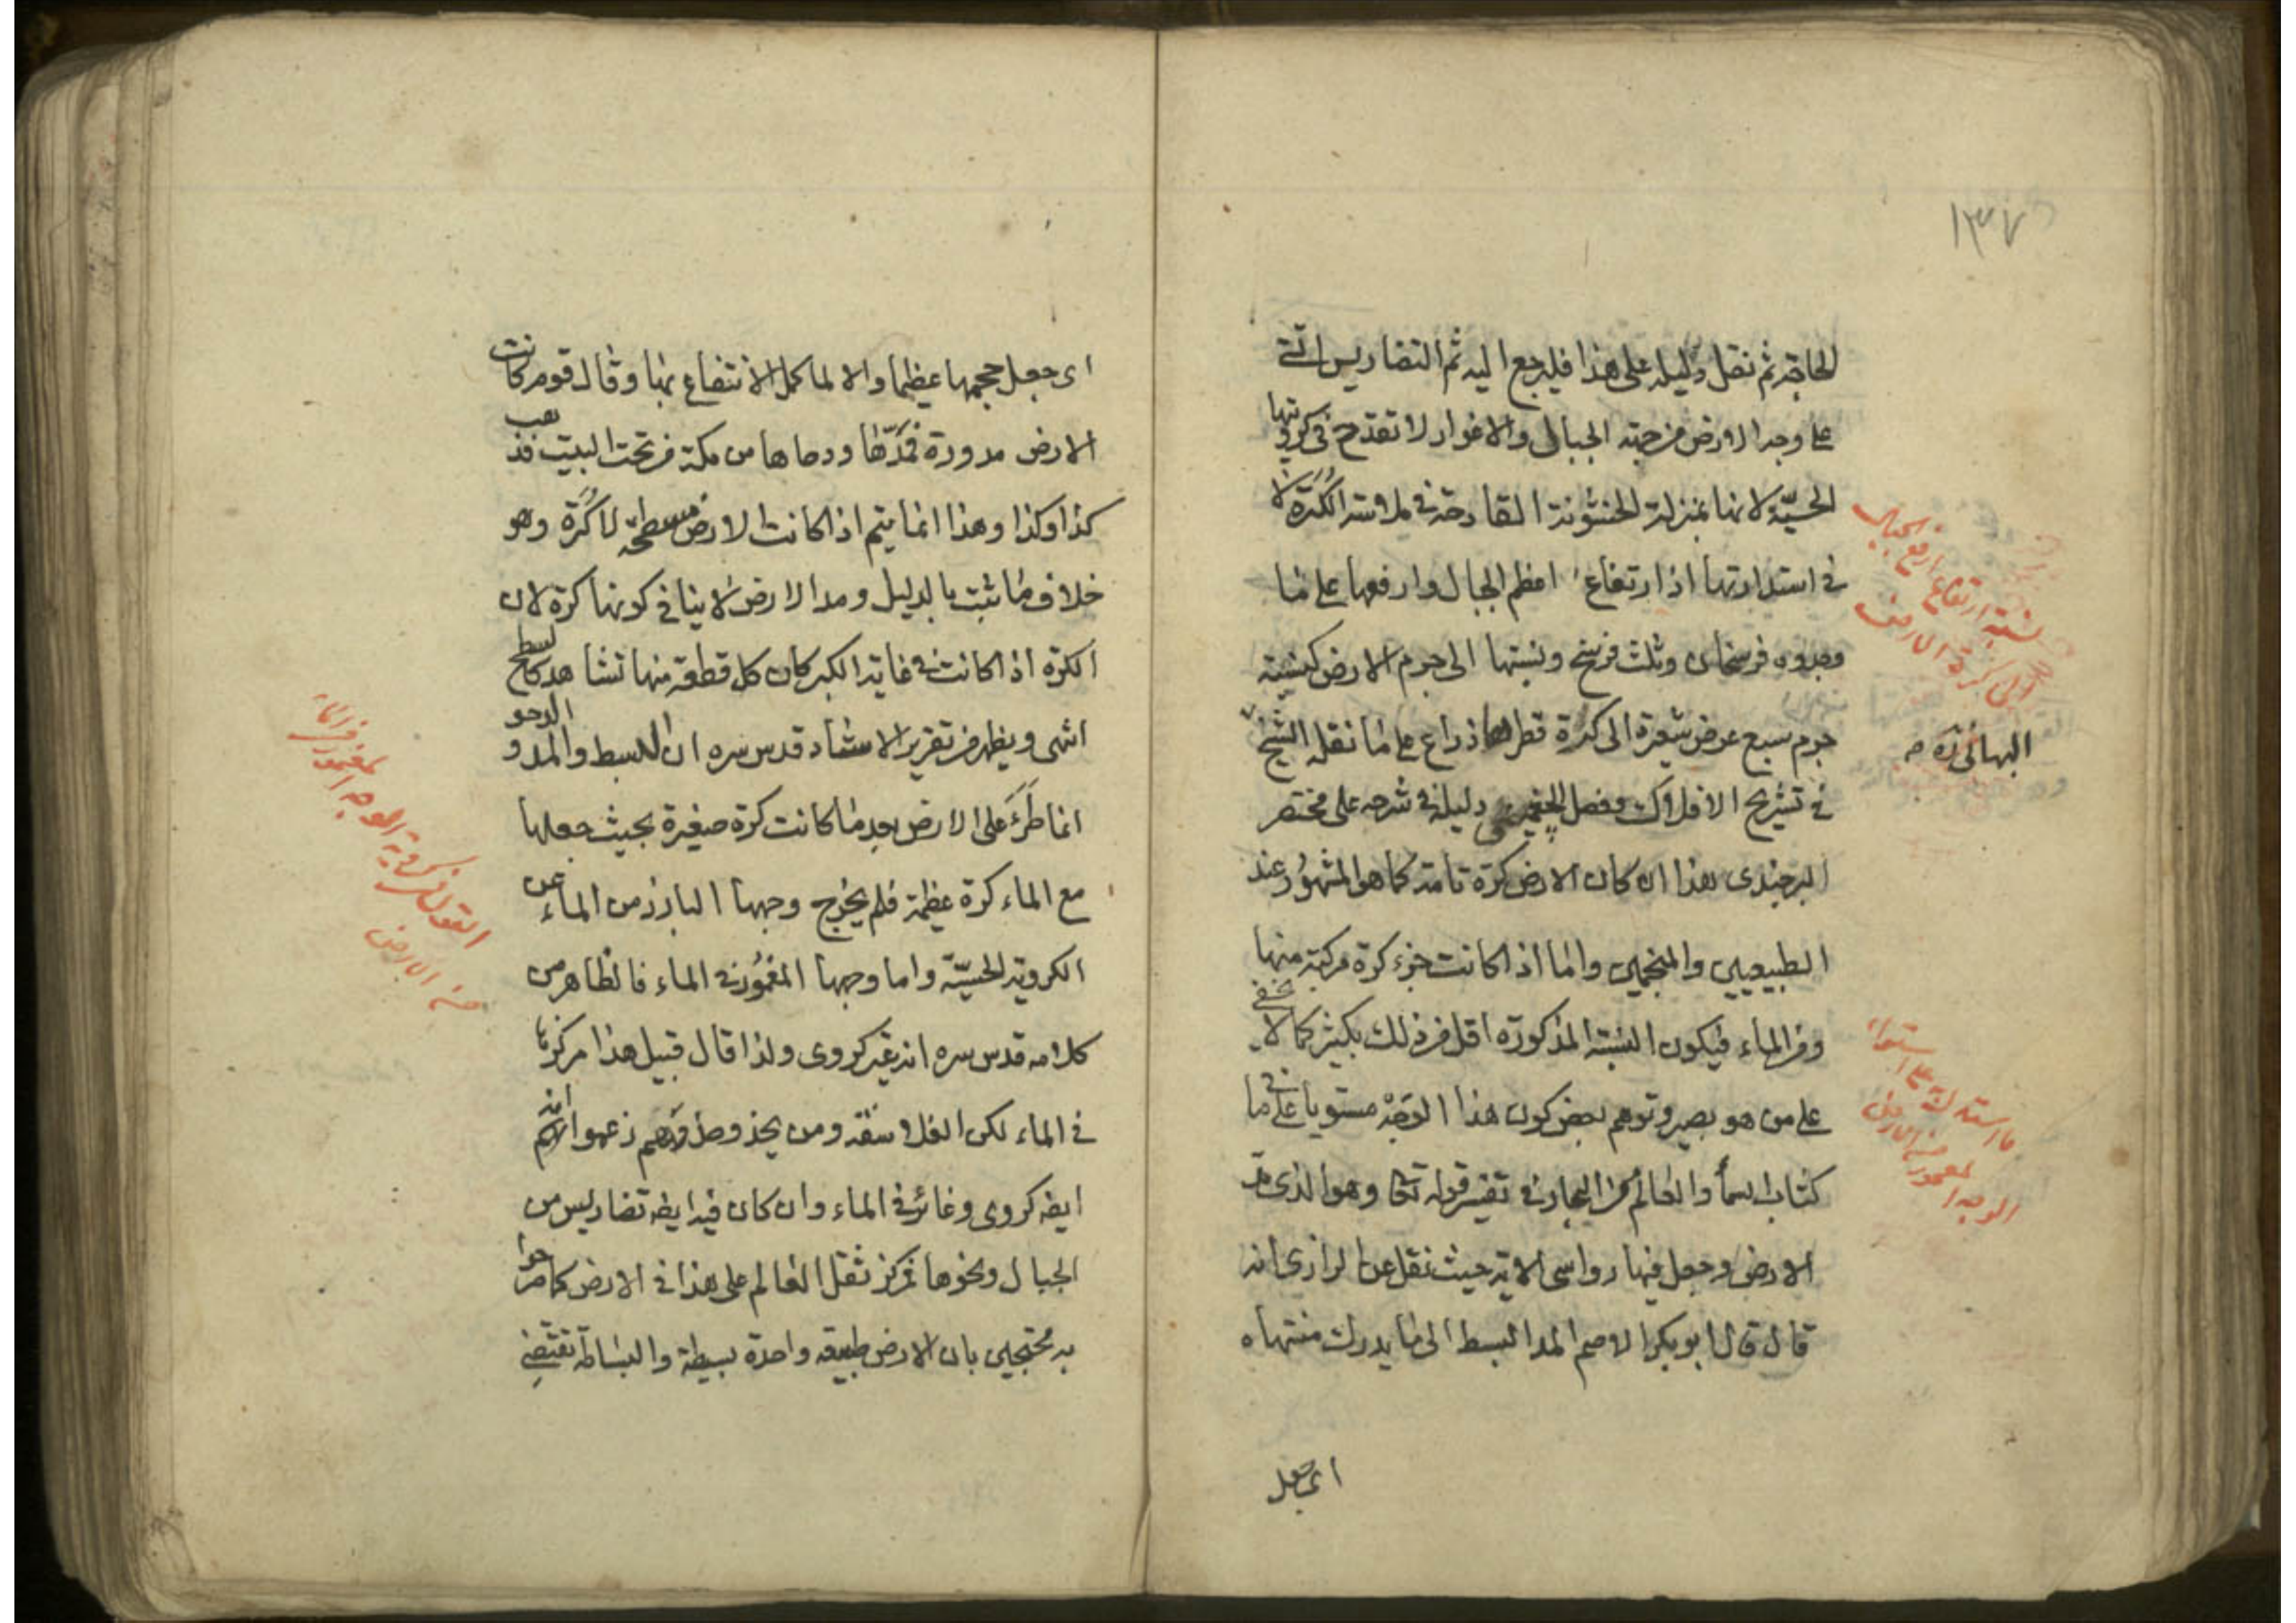 ١٣٧
الحاجة ثم نقل دليله على هذا فليرجع اليه ثم التضاريس التى
على وجه الارض من جهة الجبال والاغوار لا تقدح فى كرويتها
الحسيّة لانها بمنزلة الخشونة القادحة فى ملاسة الكُرَة لا
فى استدارتها اذ ارتفاع اعظم الجبال وارفعها على ما
وجدوه فرسخان وثلث فرسخ ونسبتها الى جرم الارض كنسبة
جرم سبع عرض شعيرة الى كرة قطرها ذراع على ما نقل الشيخ
البهائى ره
فى تشريح الافلاك وفصل دليله فى شرحه على مختصر
البرجندى هذا ان كان الارض كرة تامة كما هو المشهور عند
الطبيعيين والمنجمين واما اذا كانت جزء كرة مركبة منها
ومن الماء فيكون النسبة المذكورة اقل من ذلك بكثير كما لا يخفى
على من هو بصير وتوهم بعض كون هذا الوجه مستويا على ما فى
كتاب السمأ والعالم من البحار فى تفسير قوله تعا وهو الذى مدّ
الارض وجعل فيها رواسى الاية حيث نقل عن الرازى انه
قال قال ابو بكر الاصم المد البسط الى ما يدرك منتهاه
اى جعل
نسبة ارتفاع ارفع الجبال
الى كرة الارض
ما استدل على استواء
الوجه المعمور من الارض
اى جعل حجمها عظيما والا لما كمل الانتفاع بها وقال قوم كانت
الارض مدورة فمدّها ودحاها من مكة من تحت البيت فذهب
كذا وكذا وهذا انما يتم اذا كانت الارض مسطحة لا كُرَة وهو
خلاف ما ثبت بالدليل ومد الارض لا ينافى كونها كرة لان
الكرة اذا كانت فى غاية الكبر كان كل قطعة منها تشاهد كالسطح
انتهى ويظهر من تقرير الاستاد قدس سره ان البسط والمد والدحو
انما طَرَءَ على الارض بعد ما كانت كرة صغيرة بحيث جعلها
مع الماء كرة عظيمة فلم يخرج وجهها البارز من الماء عن
الكروية الحسيّة واما وجهها المغمور فى الماء فالظاهر من
كلامه قدس سره انه غير كروى ولذا قال قبيل هذا
فى الماء لكن الفلاسفة ومن يحذو حذوهم زعموا انه
ايضه كروى وغائر فى الماء وان كان فيه ايضه تضاريس من
الجبال ونحوها فمركز ثقل العالم على هذا فى الارض كما صرحوا
به محتجين بان الارض طبيعة واحدة بسيطة والبساطة تقتضى
القول فى كروية الوجه المغمور فى الماء
من الارض